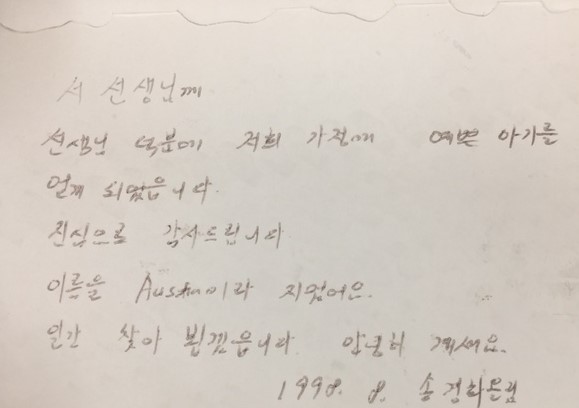 서 선생님께
선생님 덕분에 저희 가정에 예쁜 아기를
얻게 되었읍니다.
진심으로 감사드립니다
이름을 Austin이라 지었어요.
일간 찾아 뵙겠읍니다. 안녕히 계세요.
1998. 8. 송경화드림